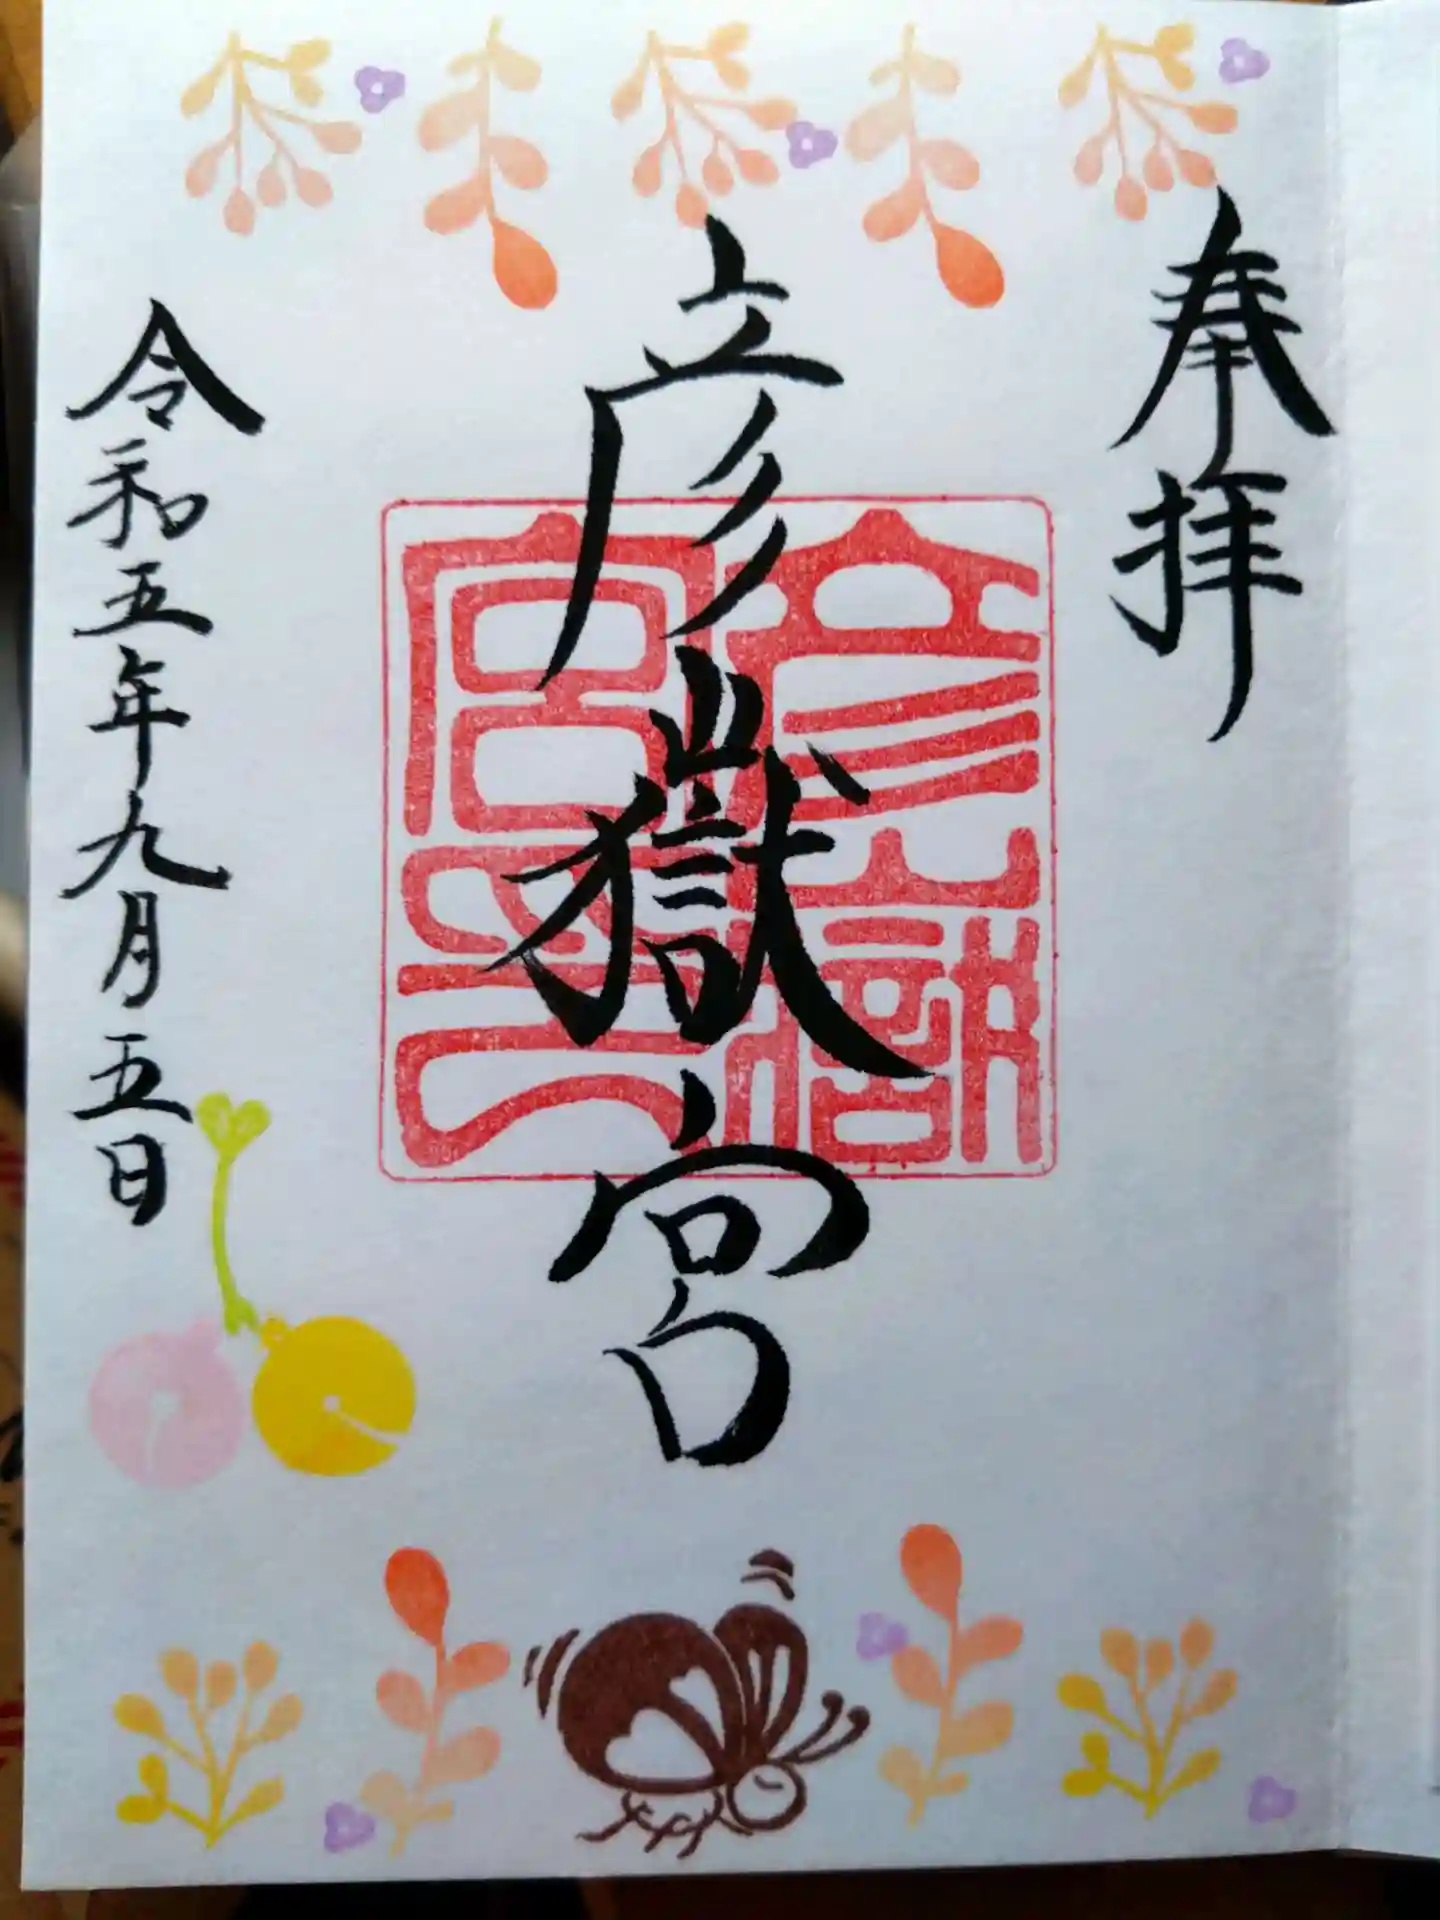 奉拝
彦嶽宮
彦山嶽
宮之印
令和五年九月五日